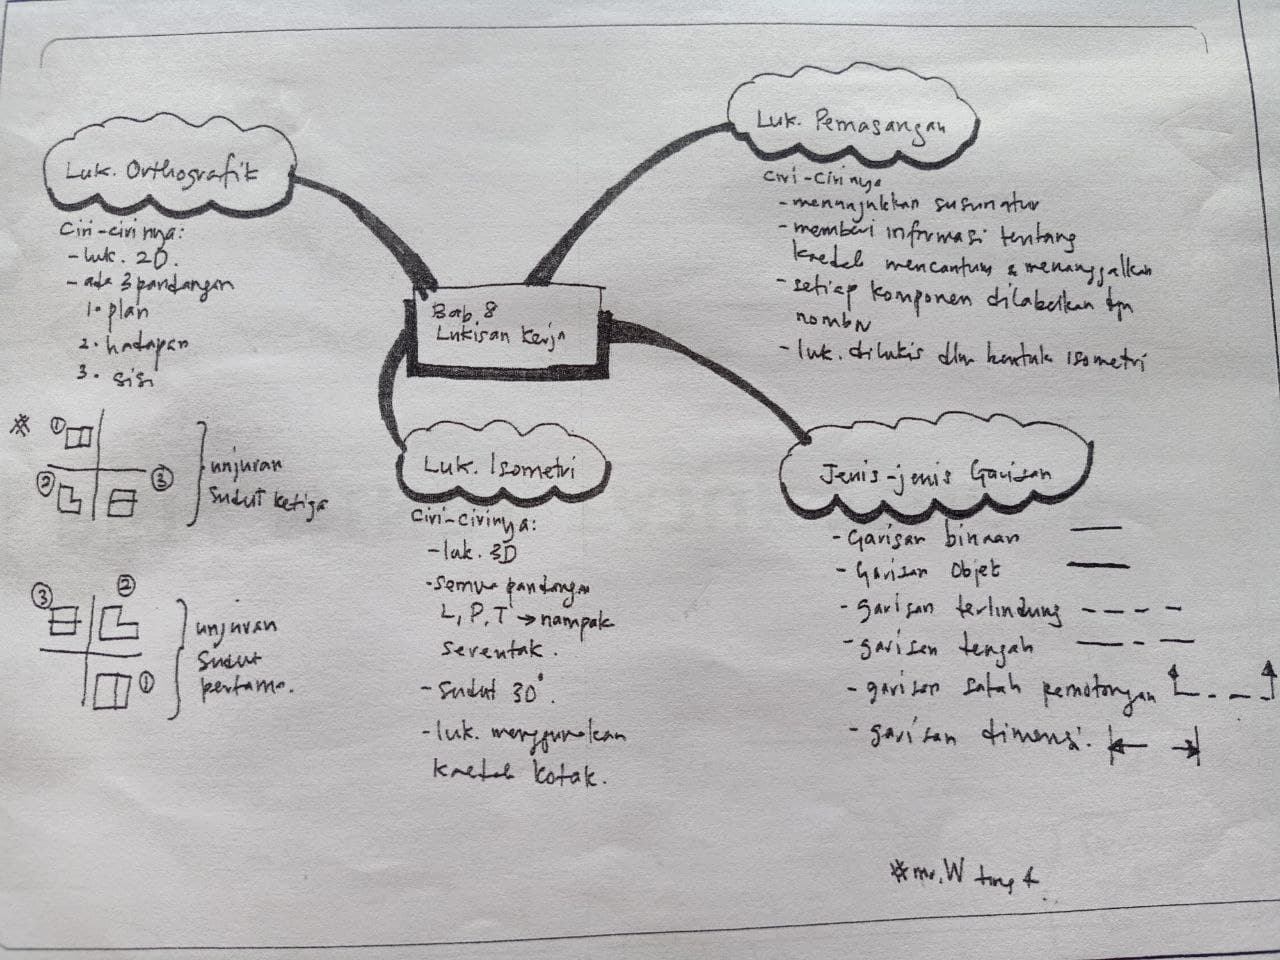 Luk. Orthografik
Ciri-cirinya:
- luk. 2D.
- ada 3 pandangan
1. plan
2. hadapan
3. sisi
※ ①
② ③
unjuran
sudut ketiga
③ ②
①
unjuran
sudut
pertama.
Bab 8
Lukisan Kerja
Luk. Isometri
Ciri-cirinya:
- luk. 3D
- semua pandangan
L, P, T → nampak
serentak.
- sudut 30°.
- luk. menggunakan
kaedah kotak.
Luk. Pemasangan
Ciri-cirinya
- menunjukkan susunatur
- memberi informasi tentang
kaedah mencantum & menanggalkan
- setiap komponen dilabelkan dgn
nombor
- luk. dilukis dlm bentuk isometri
Jenis-jenis Garisan
- Garisan binaan
- Garisan Objek
- garisan terlindung
- garisan tengah
- garisan satah pemotongan
- garisan dimensi.
※ mr. W ting 4